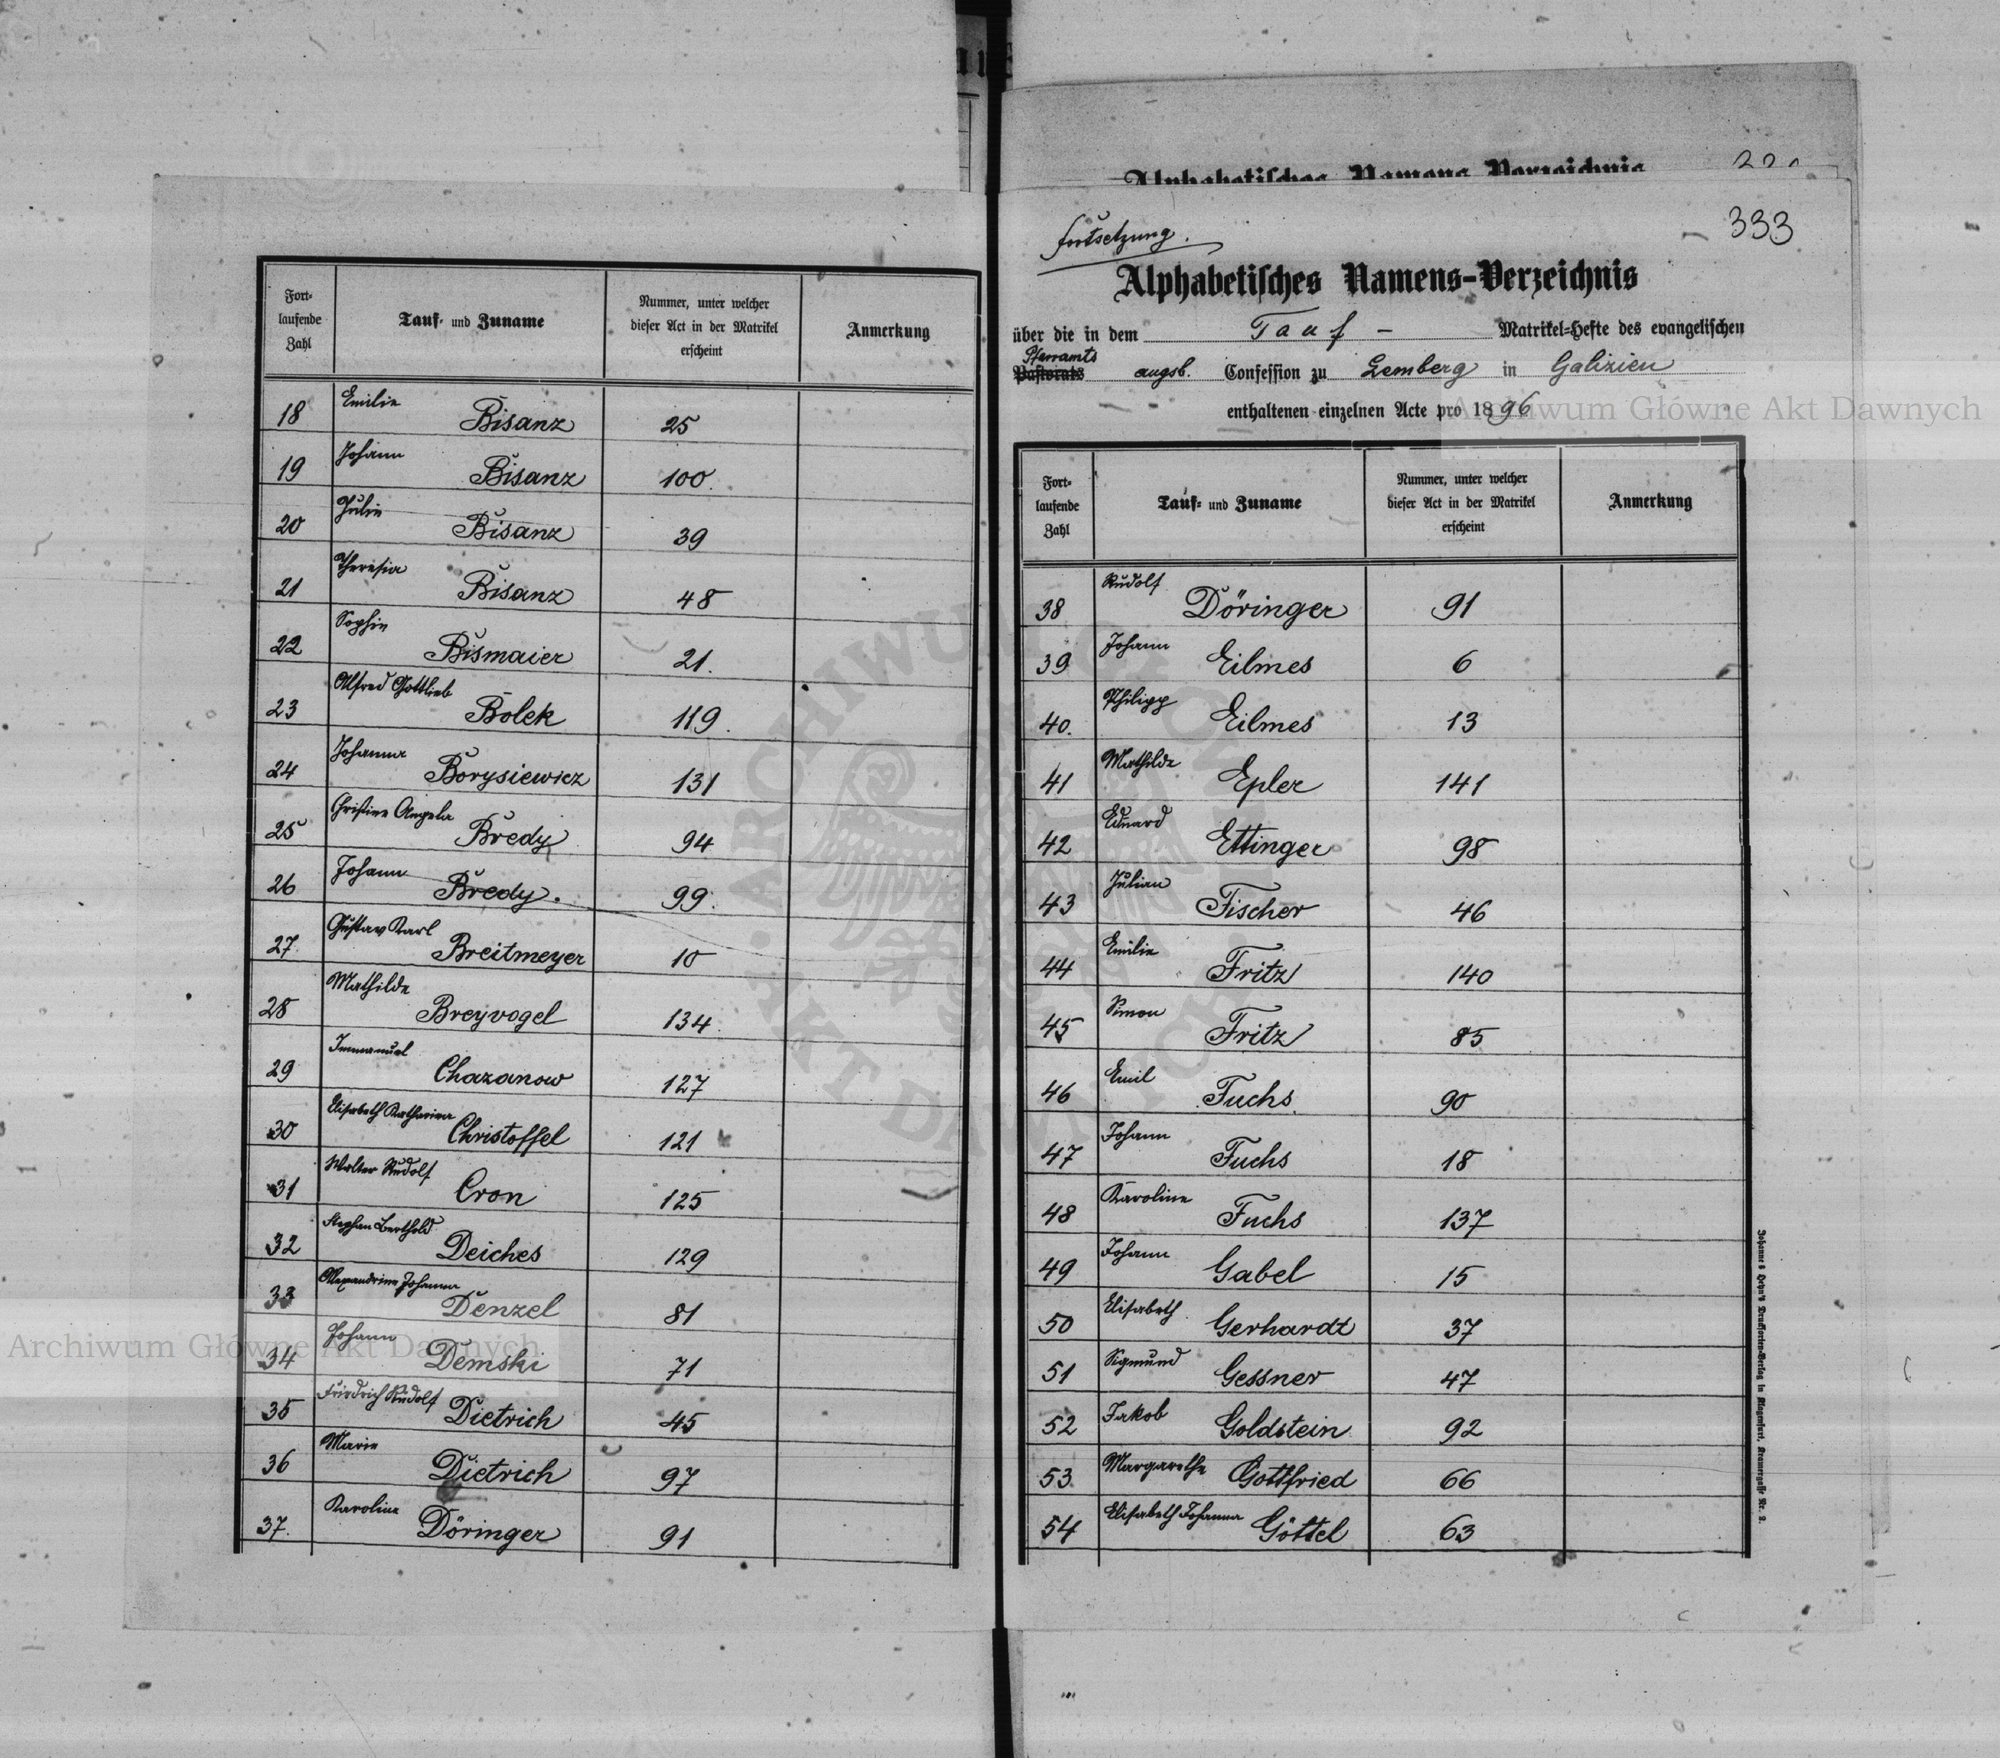 Fort-
laufende
Zahl
Tauf- und Zuname
Nummer, unter welcher
dieser Act in der Matrikel
erscheint
Anmerkung
18 Emilie Bisanz 25
19 Johann Bisanz 100.
20 Julie Bisanz 39
21 Theresia Bisanz 48
22 Sophie Bismaier 21.
23 Alfred Gottlieb Bolek 119.
24 Johanna Borysiewicz 131
25 Christine Angela Bredy 94
26 Johann Bredy. 99.
27. Gustav Karl Breitmeyer 10
28 Mathilde Breyvogel 134.
29 Immanuel Chazanow 127
30 Elisabeth Katharina Christoffel 121
31 Walter Rudolf Cron 125
32 Stephan Berthold Deiches 129
33 Alexandrine Johanna Denzel 81
34 Johann Demski 71
35 Friedrich Rudolf Dietrich 45
36 Marie Dietrich 97
37. Karoline Döringer 91
Alphabetisches Namens-Verzeichnis
333
Fortsetzung.
Alphabetisches Namens-Verzeichnis
über die in dem Tauf- Matrikel-Hefte des evangelischen
Pfarramts
Pastorats augsb. Confession zu Lemberg in Galizien
enthaltenen einzelnen Acte pro 1896
Fort-
laufende
Zahl
Tauf- und Zuname
Nummer, unter welcher
dieser Act in der Matrikel
erscheint
Anmerkung
38 Rudolf Döringer 91
39 Johann Eilmes 6
40. Philipp Eilmes 13
41 Mathilde Epler 141
42 Eduard Ettinger 98
43 Julian Fischer 46
44 Emilie Fritz 140
45 Simon Fritz 85
46 Emil Fuchs. 90
47 Johann Fuchs 18
48 Karoline Fuchs 137
49 Johann Gabel 15
50 Elisabeth Gerhardt 37
51 Sigmund Gessner 47
52 Jakob Goldstein 92
53 Margarethe Gottfried 66
54 Elisabeth Johanna Göttel 63
Johannes Heyn's Drucksorten-Verlag in Klagenfurt, Kramergasse Nr. 2.
Archiwum Główne Akt Dawnych
Archiwum Główne Akt Dawnych